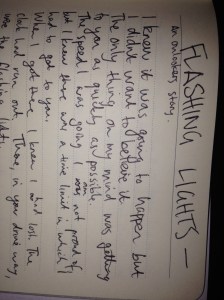 FLASHING LIGHTS —
an onlookers story.
I knew it was going to happen but
I didnt want to believe it.
The only thing on my mind was getting
to you as quickly as possible.
The speed I was going I am not proud of,
but I knew there was a time limit in which I
had to get to you.
When I got there I knew I had lost. The
clock had run out. There, in you
the flashing lights